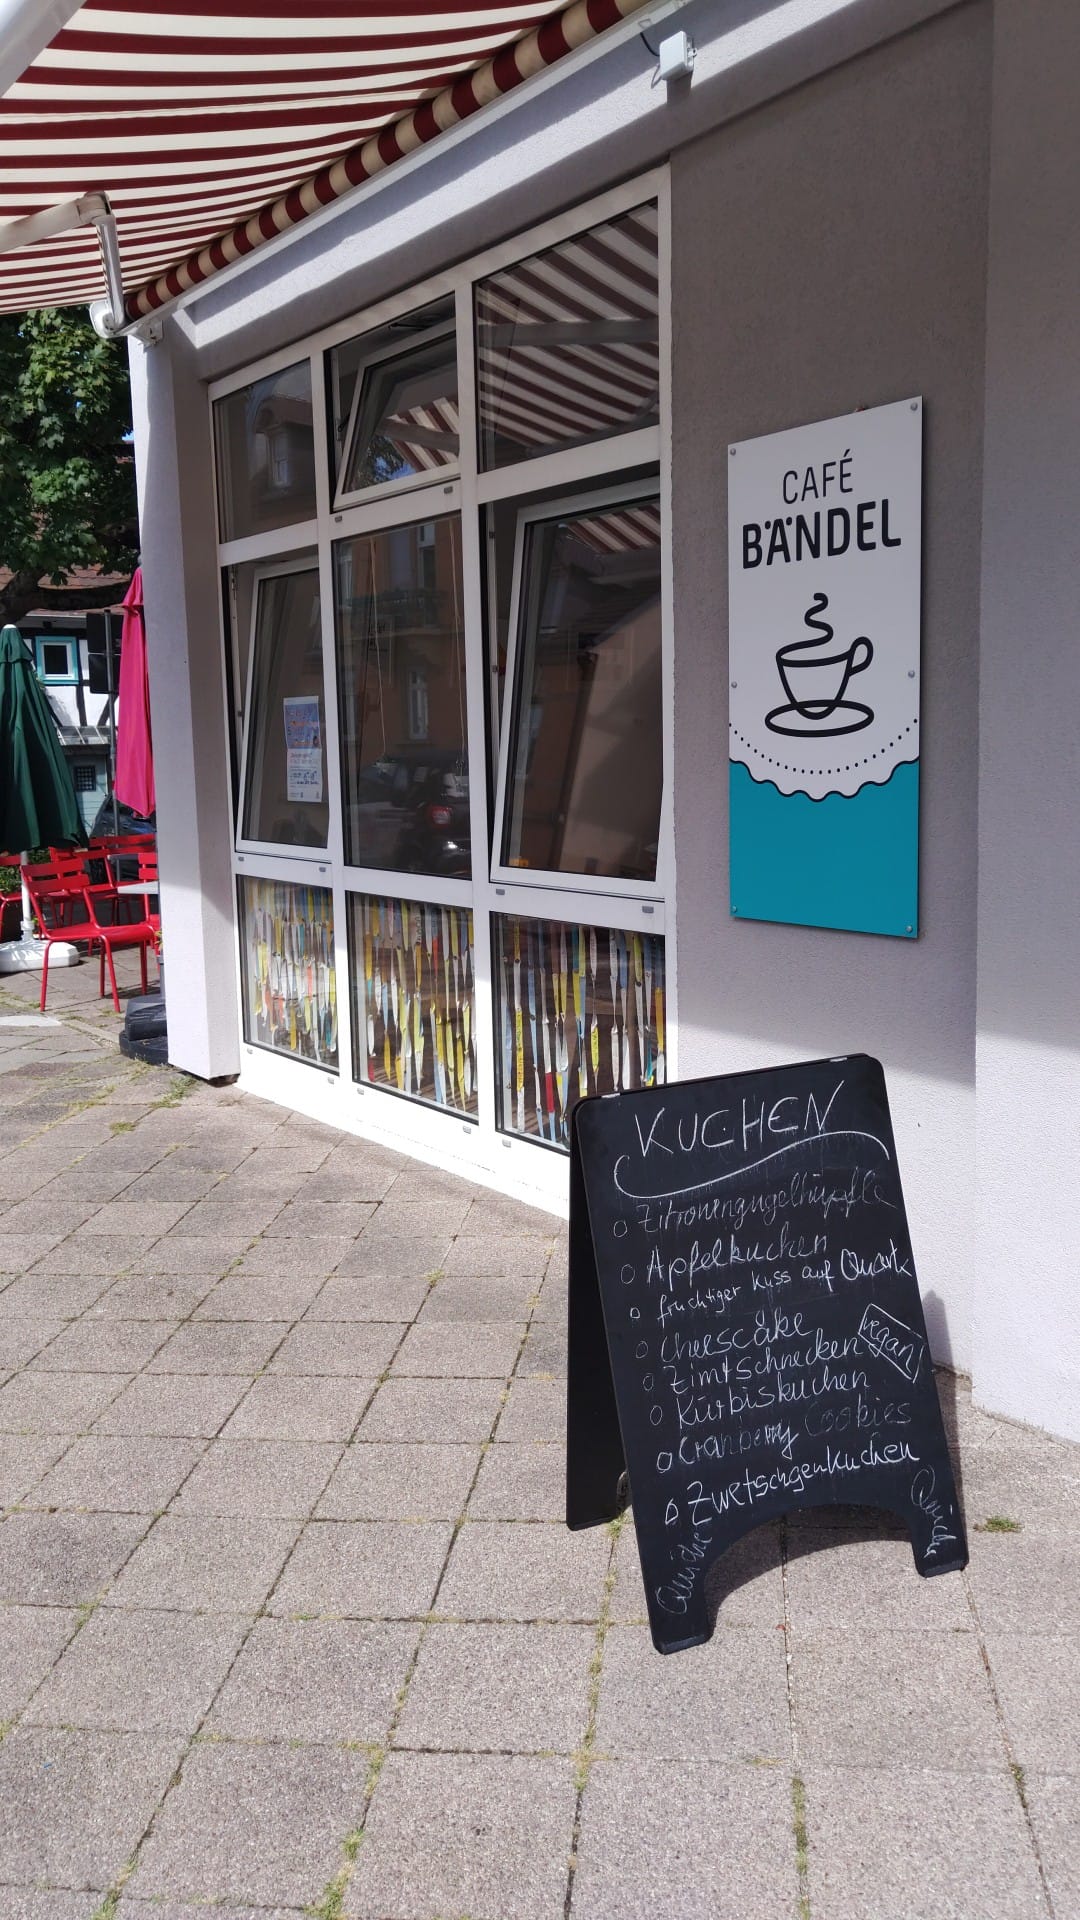 CAFÉ
BÄNDEL
KUCHEN
Zitronengugelhüpfle
Apfelkuchen
fruchtiger Kuss auf Quark
Cheesecake
Zimtschnecken vegan
Kürbiskuchen
Cranberry Cookies
Zwetschgenkuchen
Quiche
Quiche